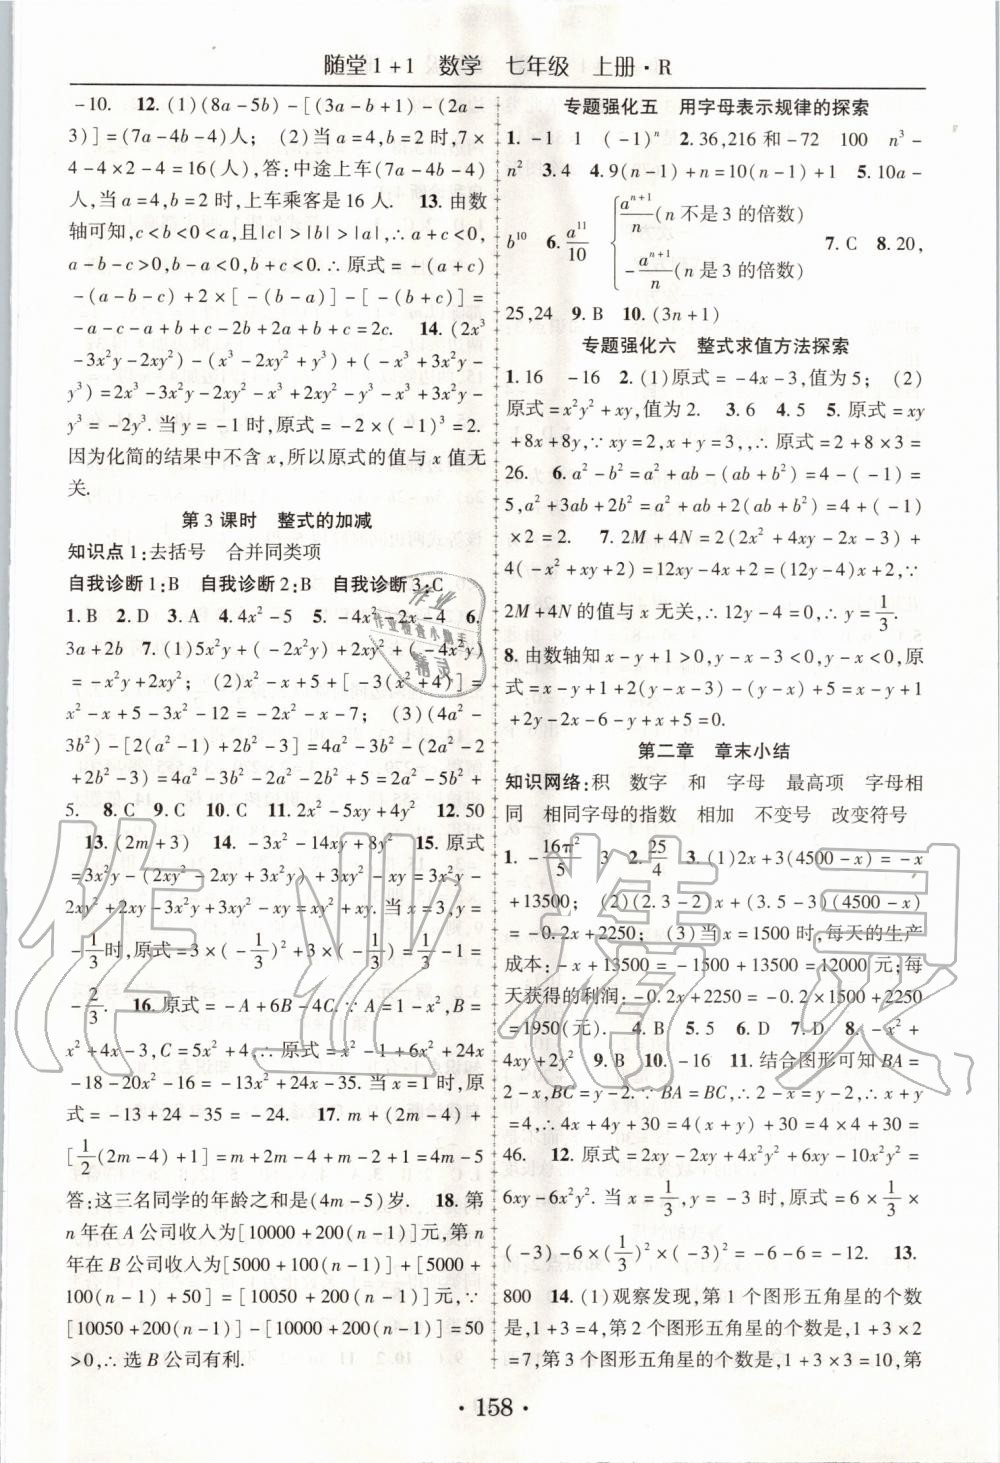 随堂1+1 数学 七年级 上册·R
-10. 12. (1)(8a-5b)-[(3a-b+1)-(2a-
3)]=(7a-4b-4)人; (2)当a=4,b=2时,7×
4-4×2-4=16(人),答:中途上车(7a-4b-4)
人,当a=4,b=2时,上车乘客是16人. 13. 由数
轴可知,c<b<0<a,且|c|>|b|>|a|,∴a+c<0,
a-b-c>0,b-a<0,b+c<0.∴原式=-(a+c)
-(a-b-c)+2×[-(b-a)]-[-(b+c)]=
-a-c-a+b+c-2b+2a+b+c=2c. 14. (2x³
-3x²y-2xy²)-(x³-2xy²+y³)+(-x³+3x²y-
y³)=2x³-3x²y-2xy²-x³+2xy²-y³-x³+3x²y-
y³=-2y³. 当y=-1时,原式=-2×(-1)³=2.
因为化简的结果中不含x,所以原式的值与x值无
关.
第3课时 整式的加减
知识点1:去括号 合并同类项
自我诊断1:B 自我诊断2:B 自我诊断3:C
1. B 2. D 3. A 4. 4x²-5 5. -4x²-2x-4 6.
3a+2b 7. (1)5x²y+(-2x²y)+2xy²+(-4x²y)
=-x²y+2xy²; (2)x²-x+5+[-3(x²+4)]=
x²-x+5-3x²-12=-2x²-x-7; (3)(4a²-
3b²)-[2(a²-1)+2b²-3]=4a²-3b²-(2a²-2
+2b²-3)=4a²-3b²-2a²-2b²+5=2a²-5b²+
5. 8. C 9. C 10. C 11. 2x²-5xy+4y² 12. 50
13. (2m+3) 14. -3x²-14xy+8y² 15. 原式
=3x²y-(2xy²-2xy+3x²y)+3xy²-xy=3x²y-
2xy²+2xy-3x²y+3xy²-xy=xy²+xy. 当x=3,y=
-1/3时,原式=3×(-1/3)²+3×(-1/3)=1/3-1=
-2/3. 16. 原式=-A+6B-4C.∵A=1-x²,B=
x²+4x-3,C=5x²+4,∴原式=x²-1+6x²+24x
-18-20x²-16=-13x²+24x-35. 当x=1时,原
式=-13+24-35=-24. 17. m+(2m-4)+
[1/2(2m-4)+1]=m+2m-4+m-2+1=4m-5
答:这三名同学的年龄之和是(4m-5)岁. 18. 第
n年在A公司收入为[10000+200(n-1)]元,第n
年在B公司收入为[5000+100(n-1)]+[5000+
100(n-1)+50]=[10050+200(n-1)]元,∵
[10050+200(n-1)]-[10000+200(n-1)]=50
>0,∴选B公司有利.
专题强化五 用字母表示规律的探索
1. -1 1 (-1)ⁿ 2. 36,216和-72 100 n³-
n² 3. 4 4. 9(n-1)+n=10(n-1)+1 5. 10a-
b¹⁰ 6. a¹¹/10 { aⁿ⁺¹/n(n不是3的倍数)
-aⁿ⁺¹/n(n是3的倍数) 7. C 8. 20,
25,24 9. B 10. (3n+1)
专题强化六 整式求值方法探索
1. 16 -16 2. (1)原式=-4x-3,值为5; (2)
原式=x²y²+xy,值为2. 3. 6 4. 5 5. 原式=xy
+8x+8y,∵xy=2,x+y=3,,∴原式=2+8×3=
26. 6. a²-b²=a²-ab+(ab+b²)=4-(-1)=
5,a²+3ab+2b²=a²+ab+2(ab+b²)=4+(-1)
×2=2. 7. 2M+4N=2(2x²+3xy-2x-1)+
4(-x²+xy-1)=12xy-4x-6=(12y-4)x-6,∵
2M+4N的值与x无关,∴12y-4=0,∴y=1/3.
8. 由数轴知x-y+1>0,y-x-3<0,y-x<0,原
式=x-y+1+2(y-x-3)-(y-x)+5=x-y+1
+2y-2x-6-y+x+5=0.
第二章 章末小结
知识网络:积 数字 和 字母 最高项 字母相
同 相同字母的指数 相加 不变号 改变符号
1. -16π²/5 3 2. 25/4 3. (1)2x+3(4500-x)=-x
+13500; (2)(2.3-2)x+(3.5-3)(4500-x)
=-0.2x+2250; (3)当x=1500时,每天的生产
成本:-x+13500=-1500+13500=12000元;每
天获得的利润:-0.2x+2250=-0.2×1500+2250
=1950(元). 4. B 5. 5 6. D 7. D 8. -x²+
4xy+2y² 9. B 10. -16 11. 结合图形可知BA=
2-x,BC=y-2.∵BA=BC,∴2-x=y-2,∴x+y
=4,∴4x+4y+30=4(x+y)+30=4×4+30=
46. 12. 原式=2xy-10x²y²+4x²y²+6xy-10x²y²=
6xy-6x²y². 当x=1/3,y=-3时,原式=6×1/3×
(-3)-6×(1/3)²×(-3)²=-6-6=-12. 13.
800 14. (1)观察发现,第1个图形五角星的个数
是,1+3=4,第2个图形五角星的个数是,1+3×2
=7,第3个图形五角星的个数是,1+3×3=10,第
·158·